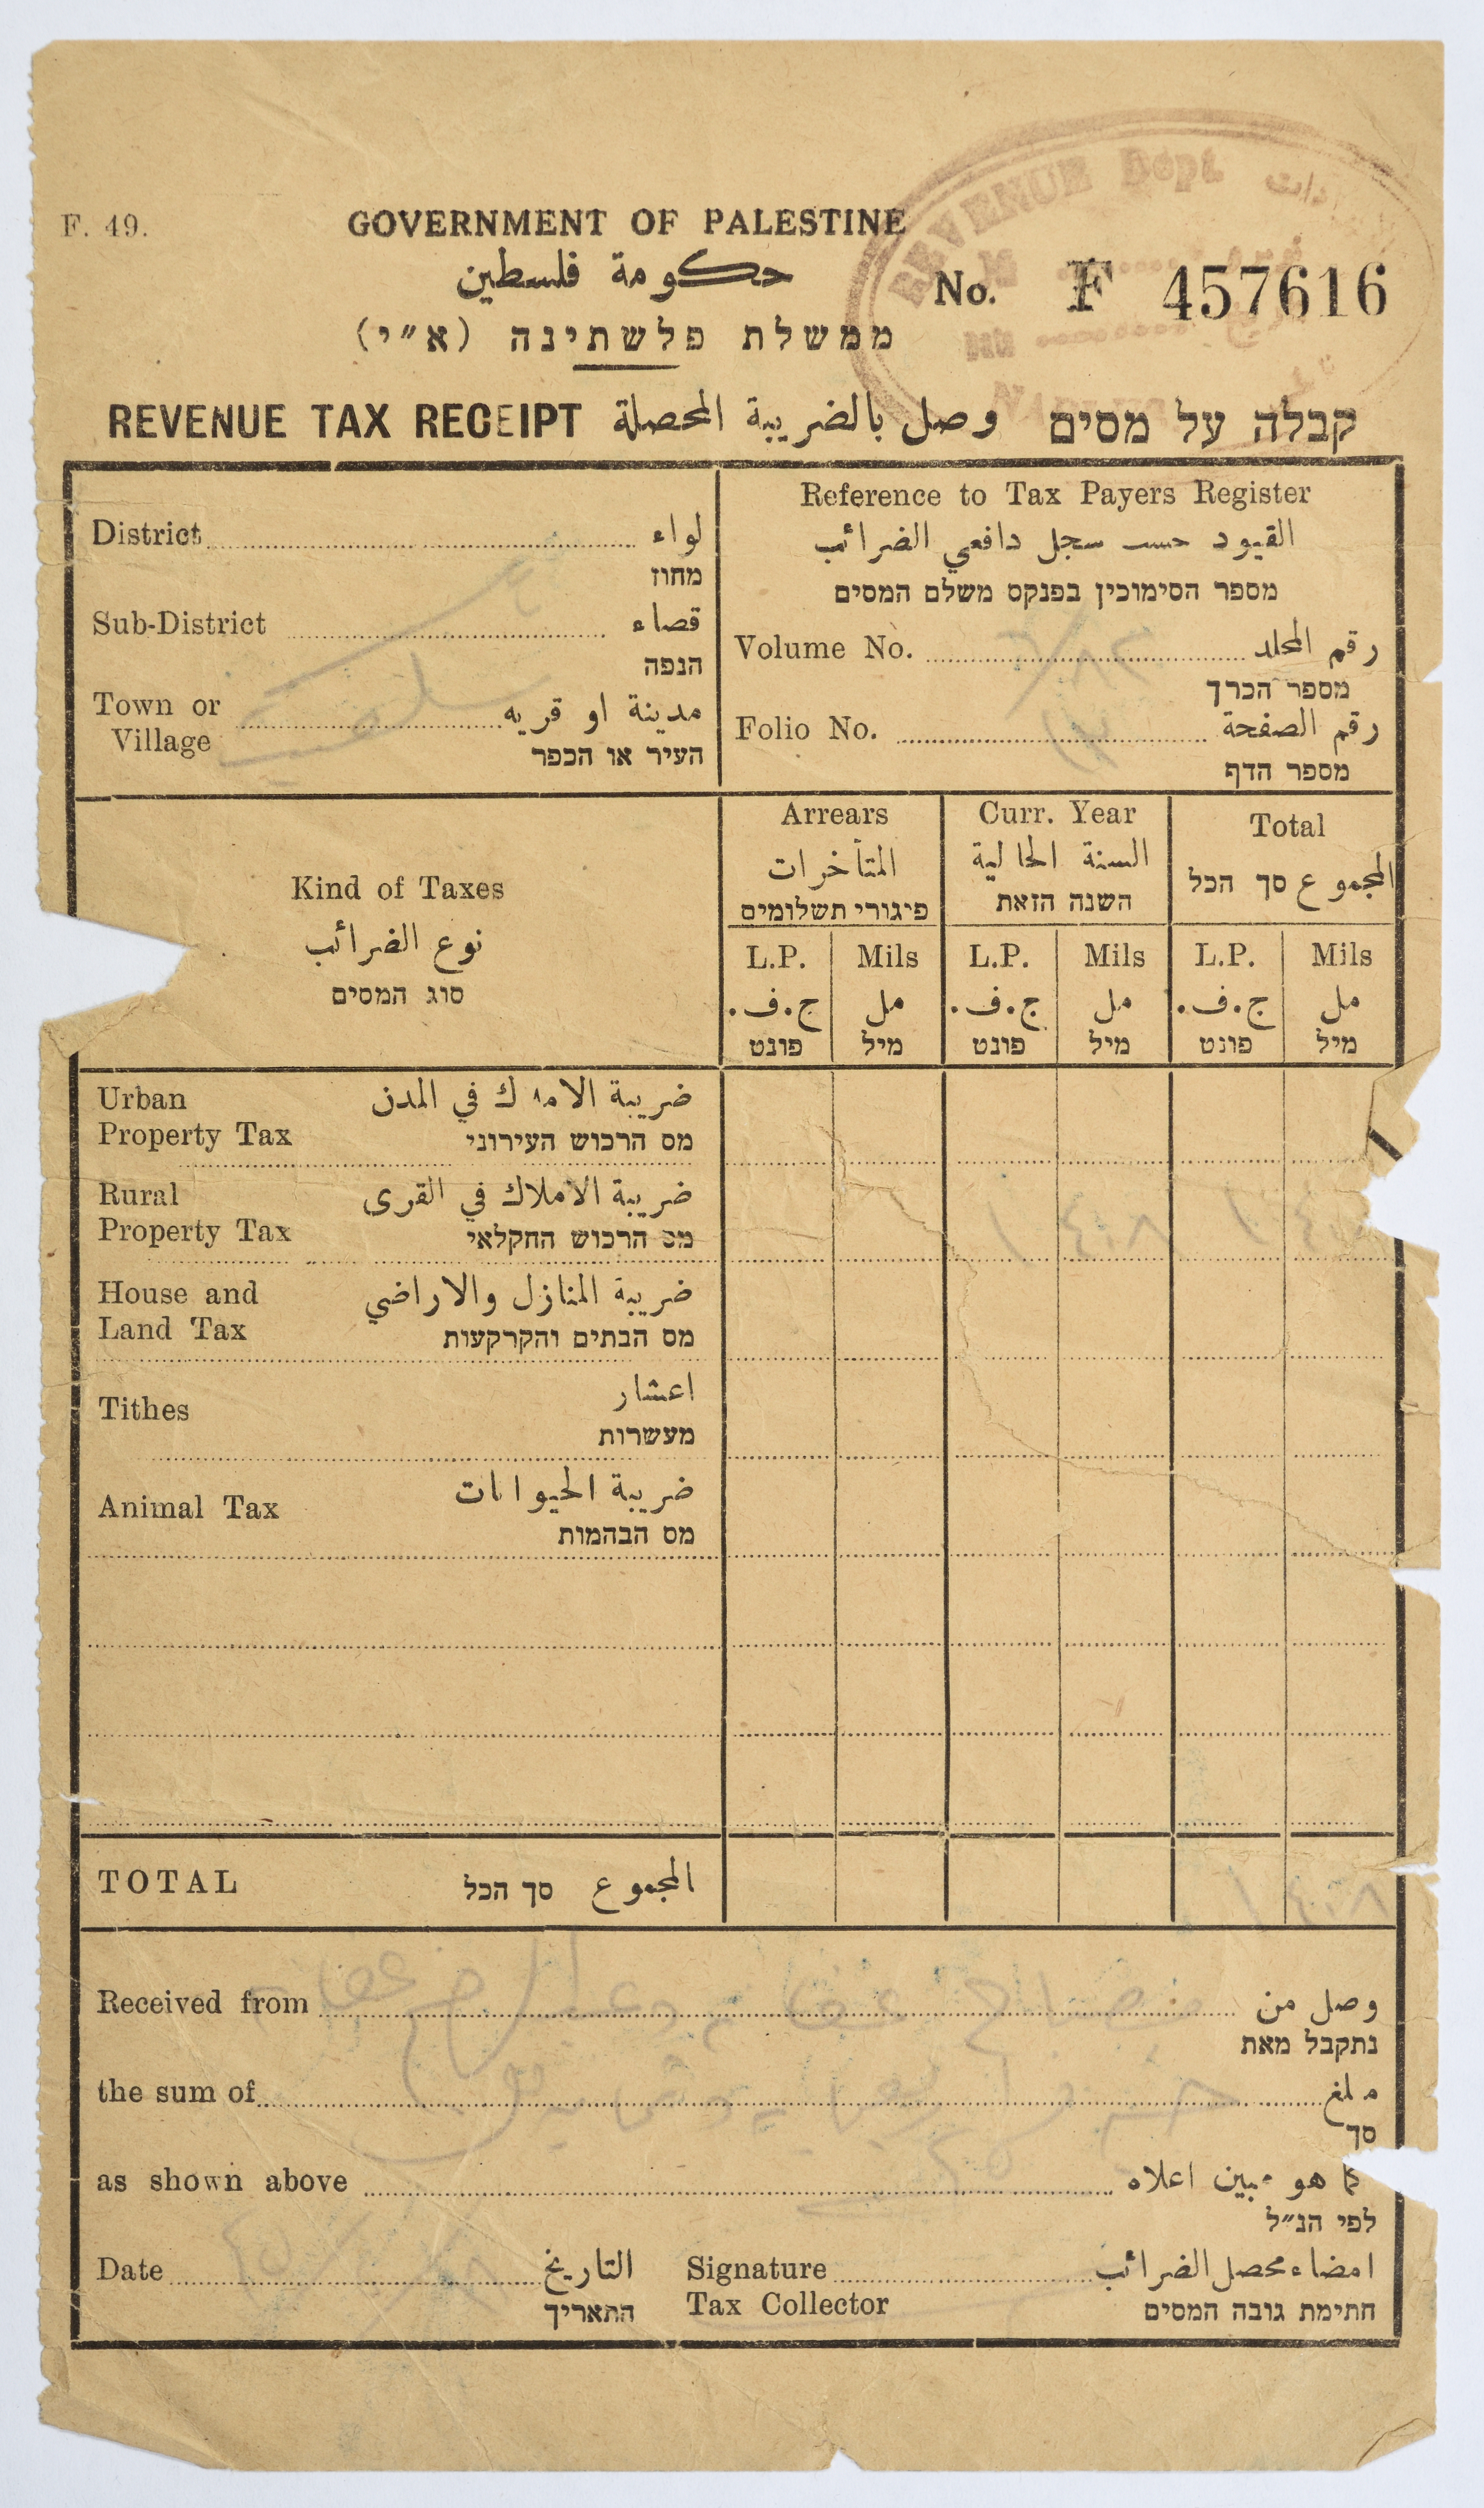 REVENUE Dept
F. 49.
GOVERNMENT OF PALESTINE
حكومة فلسطين
No. F 457616
ממשלת פלשתינה (א״י)
REVENUE TAX RECEIPT وصل بالضريبة المحصلة קבלה על מסים
District لواء
מחוז
Sub-District قضاء
הנפה
Town or Village مدينة او قريه
העיר או הכפר
Reference to Tax Payers Register
القيود حسب سجل دافعي الضرائب
מספר הסימוכין בפנקס משלם המסים
Volume No. رقم المجلد
מספר הכרך
Folio No. رقم الصفحة
מספר הדף
Kind of Taxes
نوع الضرائب
סוג המסים
Arrears
المتأخرات
פיגורי תשלומים
Curr. Year
السنة الحالية
השנה הזאת
Total
المجموع סך הכל
L.P. Mils L.P. Mils L.P. Mils
ج.ف. مل ج.ف. مل ج.ف. مل
פונט מיל פונט מיל פונט מיל
Urban ضريبة الاملاك في المدن
Property Tax מס הרכוש העירוני
Rural ضريبة الاملاك في القرى
Property Tax מס הרכוש החקלאי
House and ضريبة المنازل والاراضي
Land Tax מס הבתים והקרקעות
Tithes اعشار
מעשרות
Animal Tax ضريبة الحيوانات
מס הבהמות
TOTAL المجموع סך הכל
Received from وصل من
נתקבל מאת
the sum of مبلغ
סך
as shown above كما هو مبين اعلاه
לפי הנ״ל
Date التاريخ Signature امضاء محصل الضرائب
התאריך Tax Collector חתימת גובה המסים